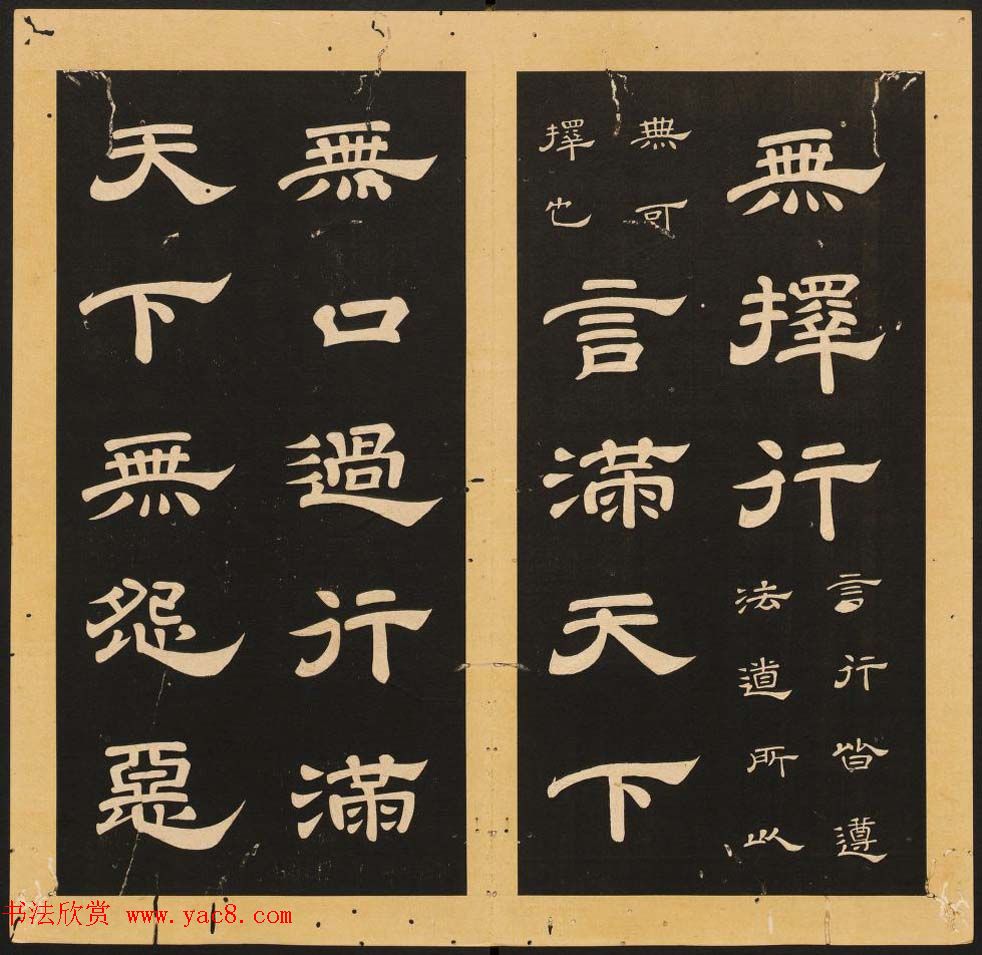 無擇行言行皆遵法道所以
無可擇也言滿天下
無口過行滿
天下無怨惡
书法欣赏 www.yac8.com